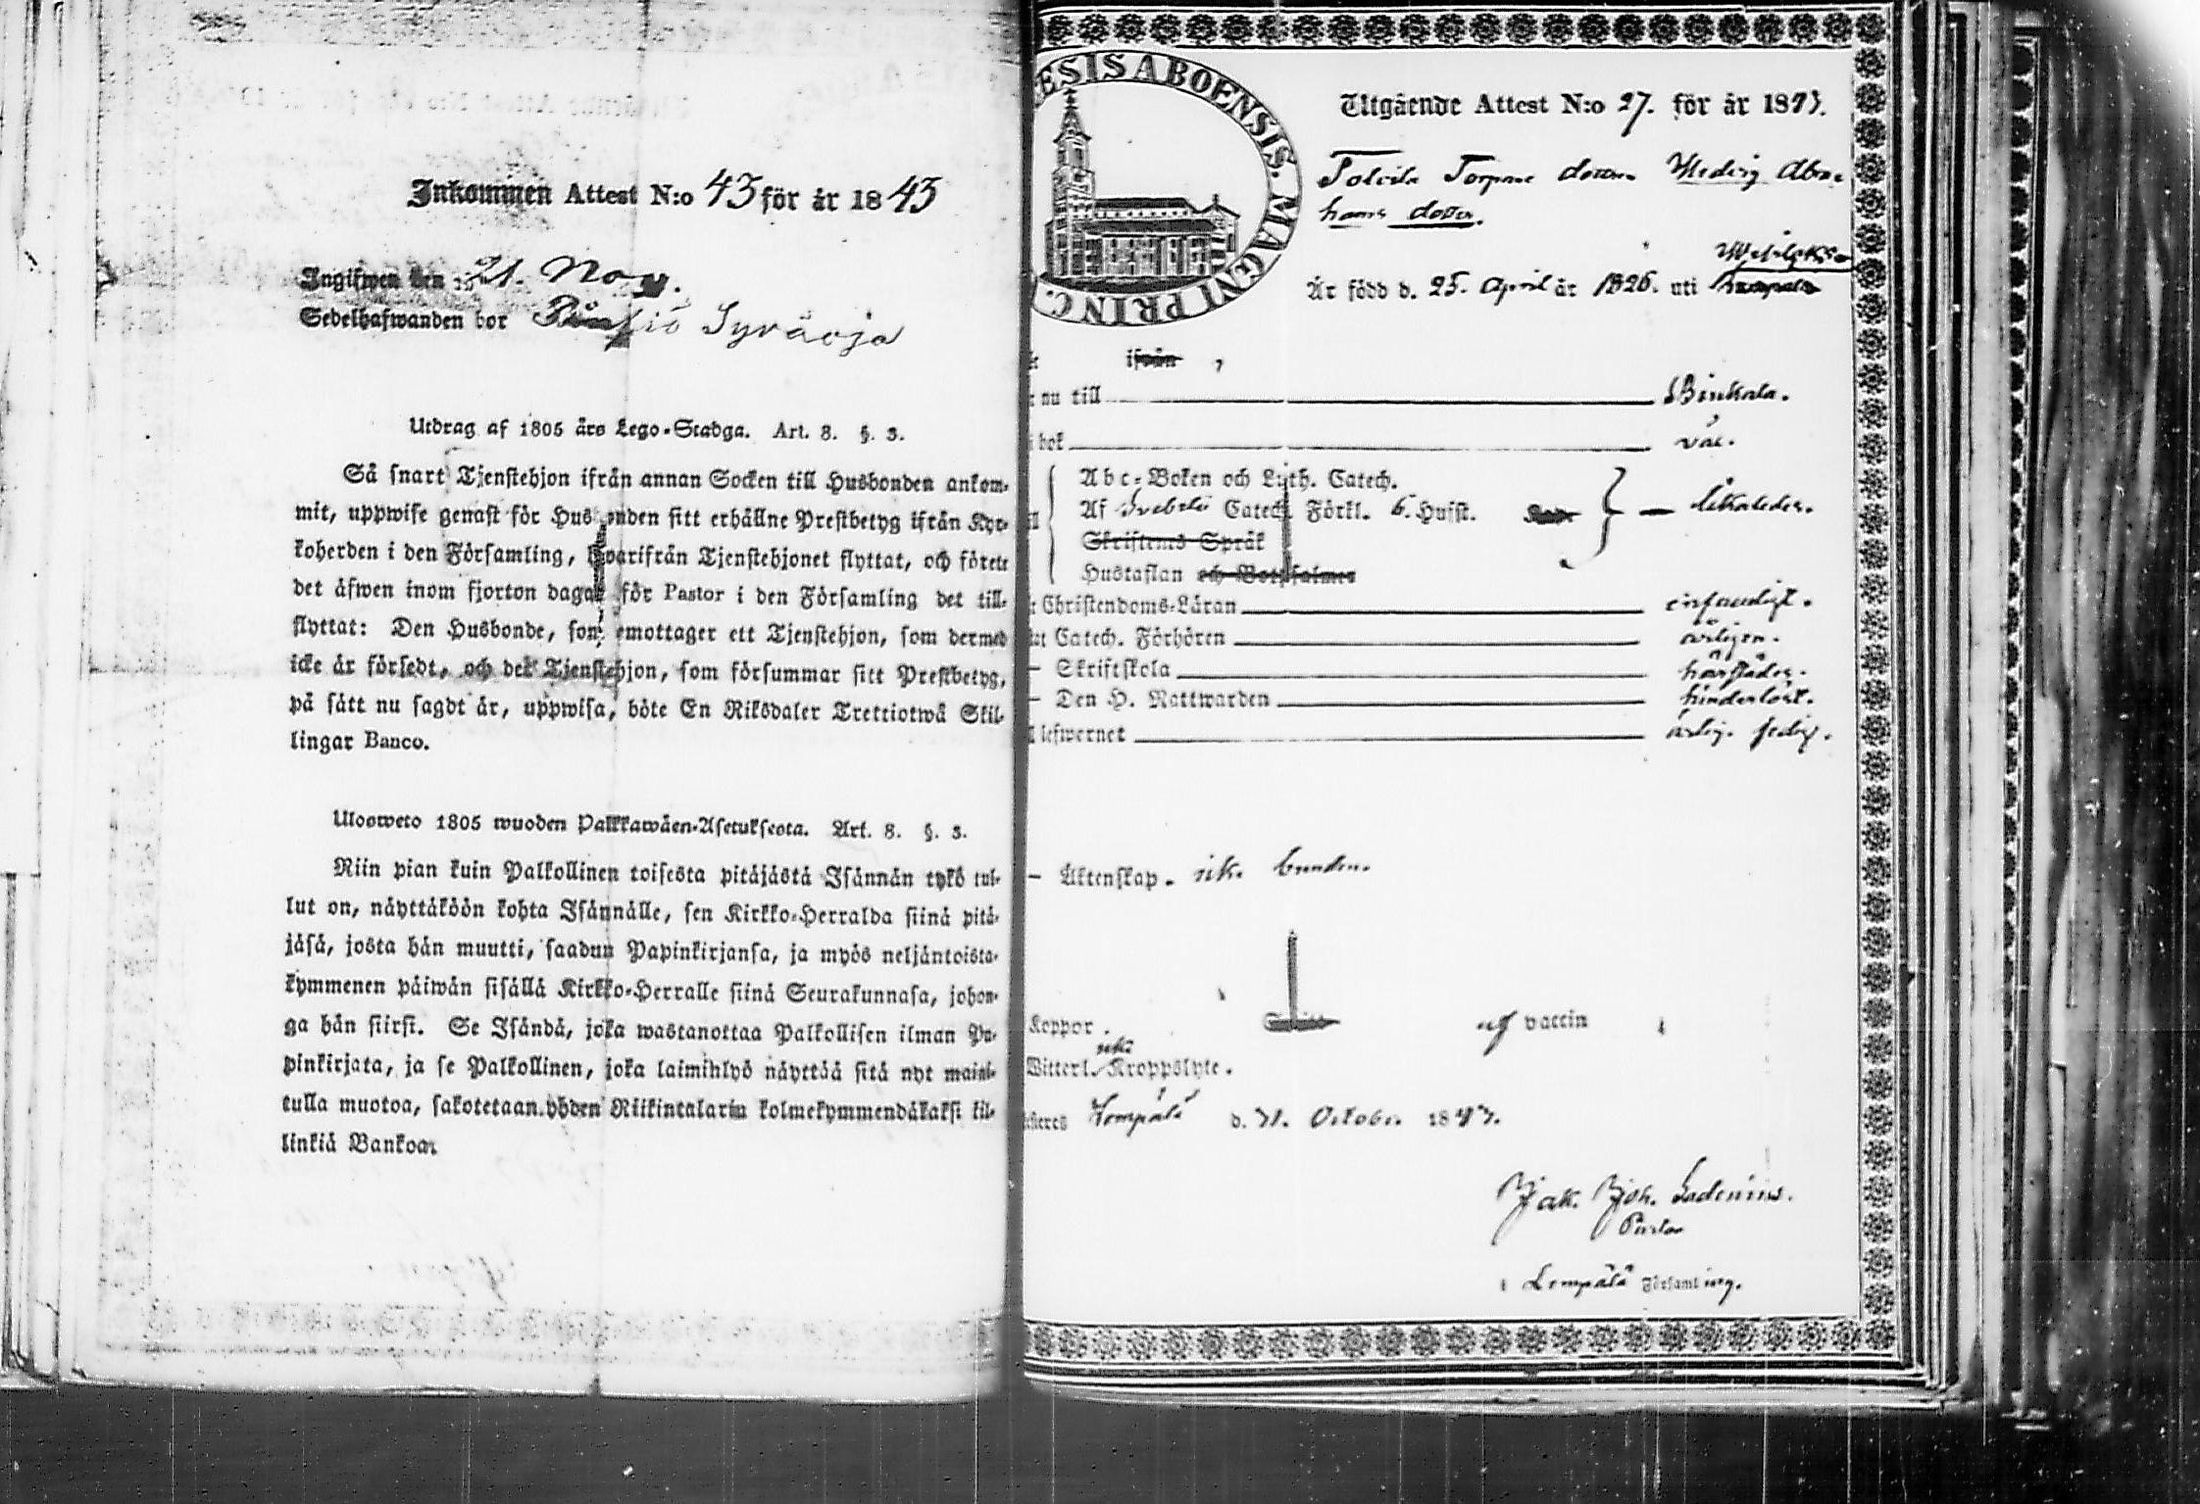 Inkommen Attest N:o 43 för år 1843
Ingifwen den 21. Nov.
Sedelhafwanden bor Syväoja
Utdrag af 1805 års Lego-Stadga. Art. 8. §. 3.
Så snart Tjenstehjon ifrån annan Socken till Husbonden ankom-
mit, uppwise genast för Husbonden sitt erhållne Prestbetyg ifrån Kyr-
koherden i den Församling, hvarifrån Tjenstehjonet flyttat, och förete
det äfwen inom fjorton dagar för Pastor i den Församling det till-
flyttat: Den Husbonde, som emottager ett Tjenstehjon, som dermed
icke är försedt, och det Tjenstehjon, som försummar sitt Prestbetyg,
på sätt nu sagdt är, uppwisa, böte En Riksdaler Trettiotwå Skil-
lingar Banco.
Ulosweto 1805 wuoden Palkkawäen-Asetuksesta. Art. 8. §. 3.
Niin pian kuin Palkollinen toisesta pitäjästä Isännän tykö tul-
lut on, näyttäköön kohta Isännälle, sen Kirkko-Herralda siinä pitä-
jäsä, josta hän muutti, saadun Papinkirjansa, ja myös neljäntoista-
kymmenen päiwän sisällä Kirkko-Herralle siinä Seurakunnasa, johon-
ga hän siirsi. Se Isändä, joka wastanottaa Palkollisen ilman Pa-
pinkirjata, ja se Palkollinen, joka laimihlyö näyttää sitä nyt maini-
tulla muotoa, sakotetaan yhden Riikintalarin kolmekymmendäkaksi kil-
linkiä Bankoa.
ESIS ABOENSIS. MAGNI PRINC.
Utgående Attest N:o 27. för år 1843.
Toivila Torpare dotter Hedvig Abra-
hams dotter.
Är född d. 25. April år 1826. uti
ifrån,
nu till Birkala.
i bok väl.
Abc-Boken och Luth. Catech.
Af Svebelii Catech. Förkl. 6. Hufst. — likaledes.
Skriftens Språk
Hustaflan och Botpsalmer
Christendoms-Läran enfaldigt.
Catech. Förhören årligen.
– Skriftskola härstädes.
– Den H. Nattwarden hinderlöst.
lefwernet ärlig. fredig.
– Äktenskap. icke bunden.
Koppor. af vaccin
icke
Witterl. Kroppslyte.
Lempälä d. 31. October 1843.
Jak. Joh. Ladenius.
Pastor
i Lempälä Församling.